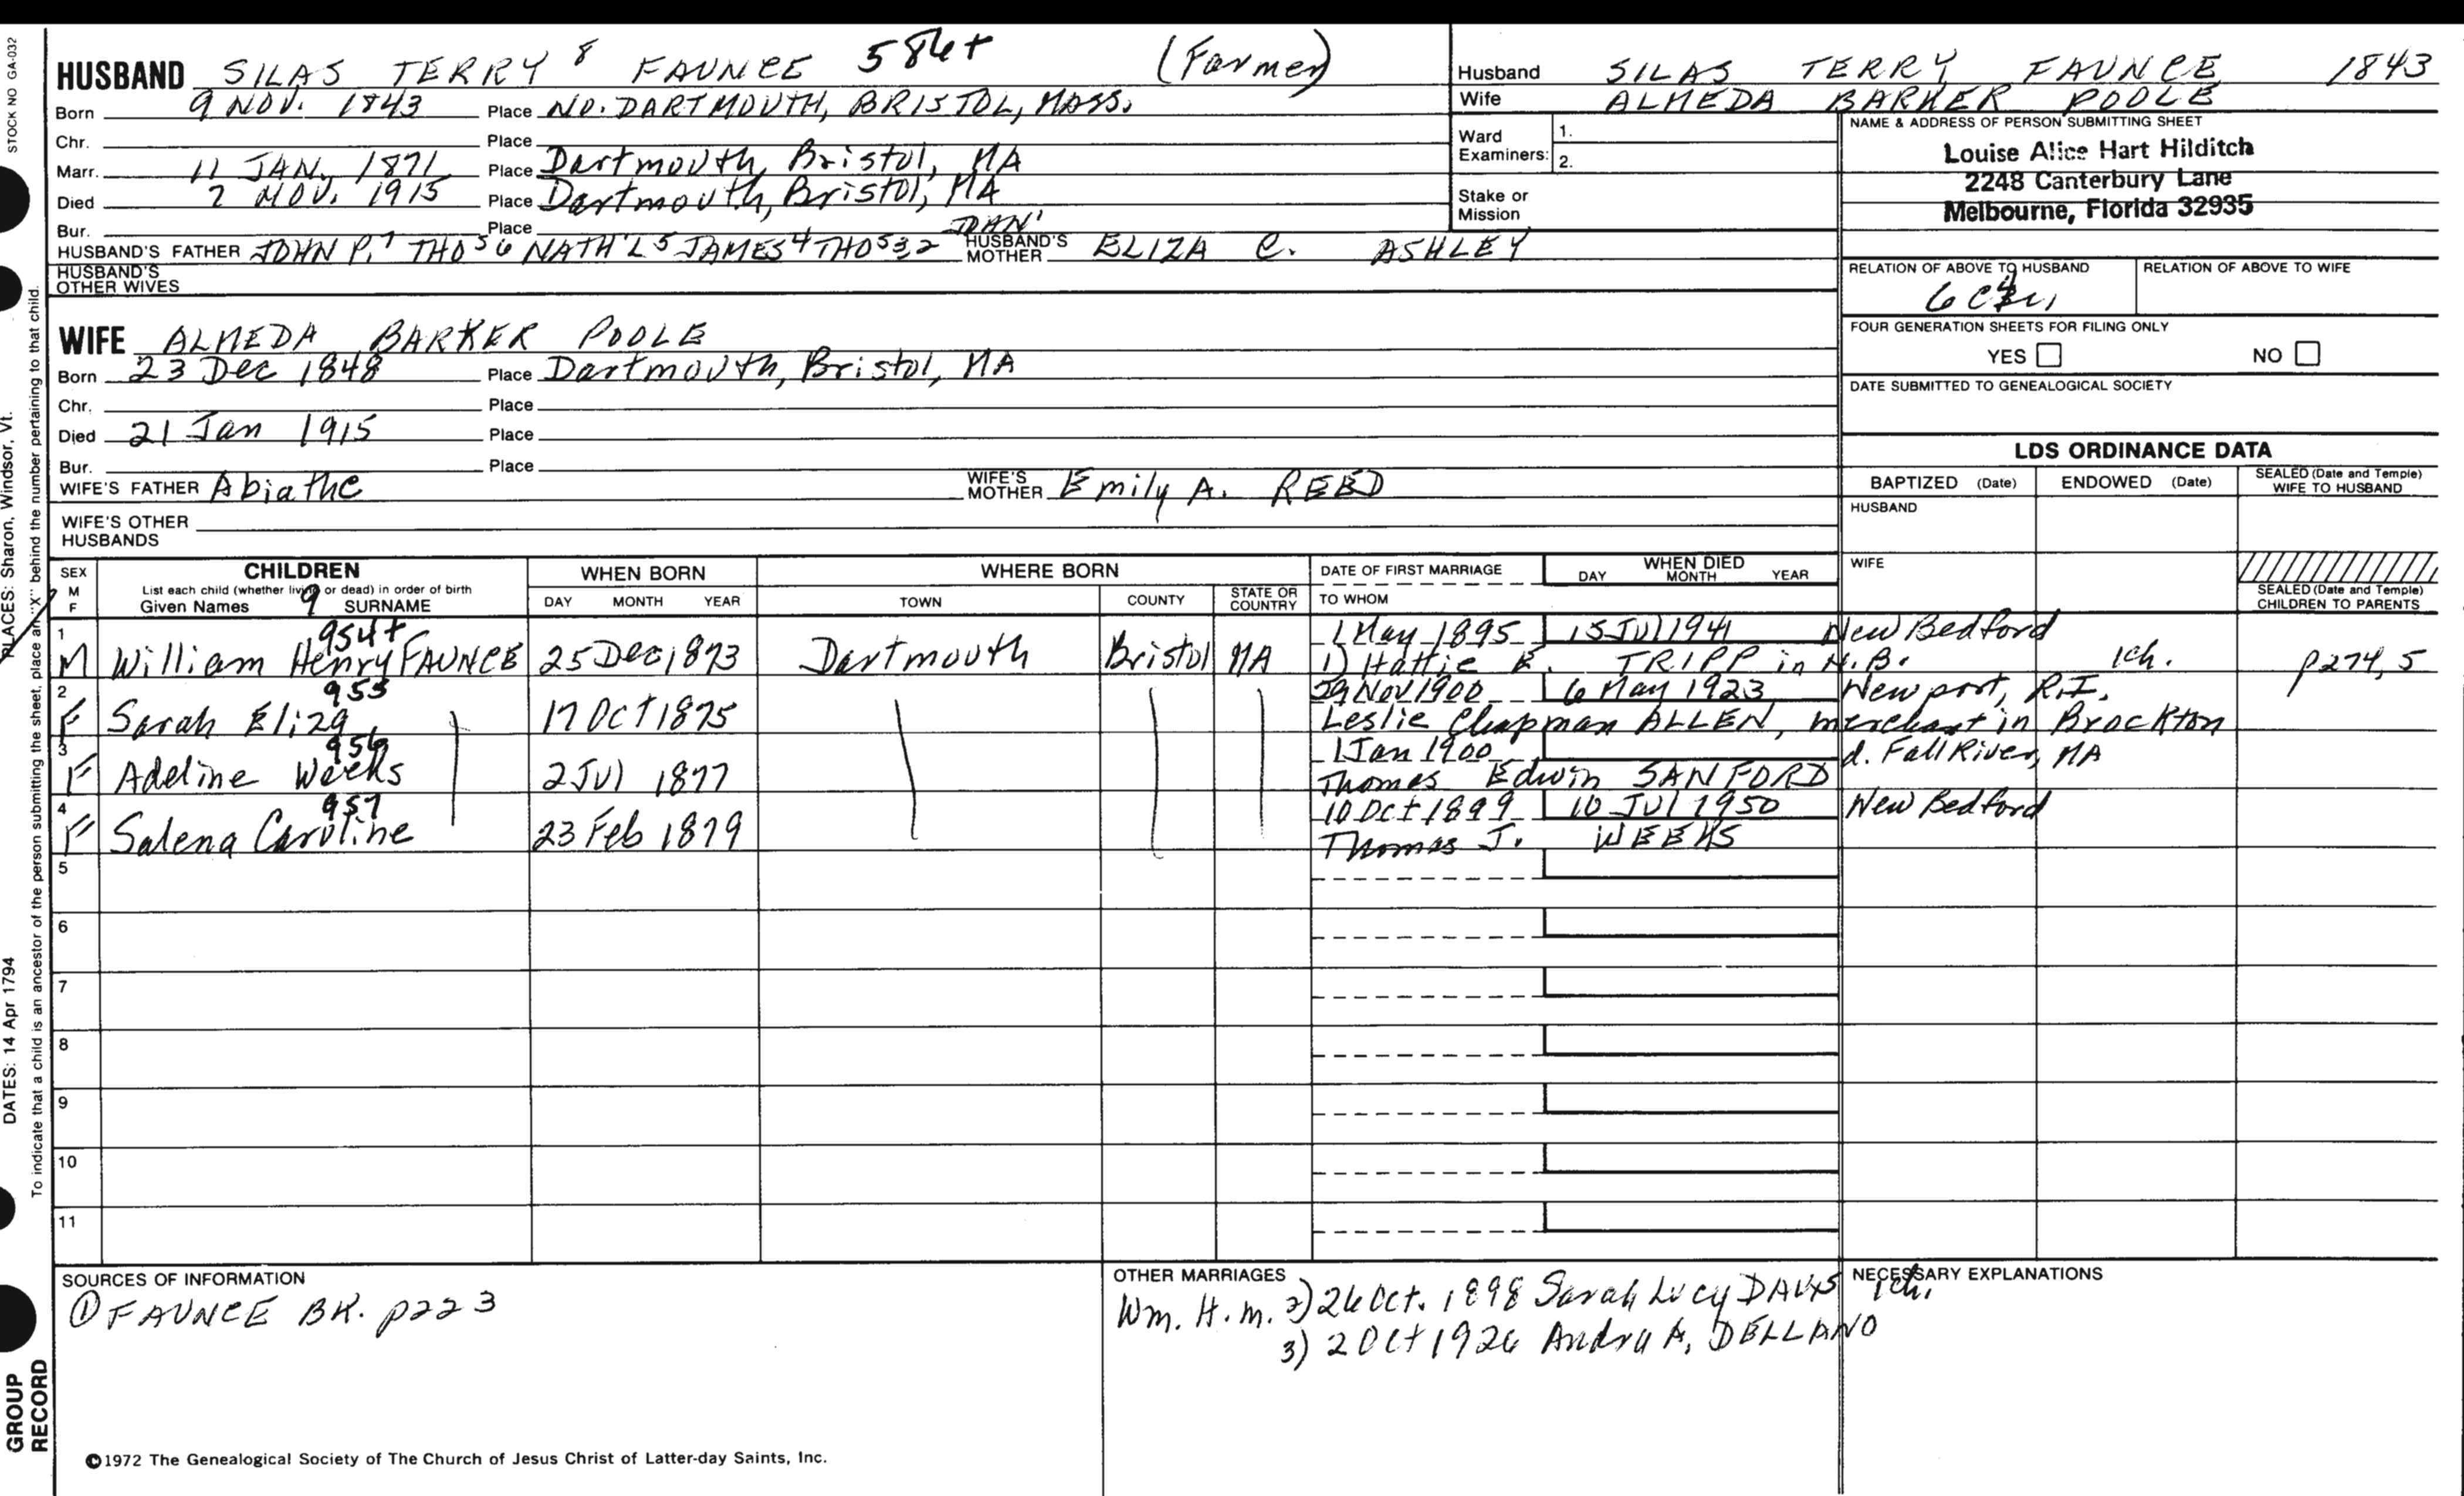 STOCK NO GA-032
HUSBAND SILAS TERRY 8 FAUNCE 586+ (Farmer)
Born 9 NOV. 1843 Place NO. DARTMOUTH, BRISTOL, MASS.
Chr. Place
Marr. 11 JAN. 1871 Place Dartmouth, Bristol, MA
Died 2 NOV. 1915 Place Dartmouth, Bristol, MA
Bur. Place
HUSBAND'S FATHER JOHN P.7 THOS6 NATH'L5 JAMES4 THOS3,2 JOHN1 HUSBAND'S MOTHER ELIZA C. ASHLEY
HUSBAND'S OTHER WIVES
Husband SILAS TERRY FAUNCE 1843
Wife ALMEDA BARKER POOLE
Ward Examiners: 1.
2.
Stake or Mission
NAME & ADDRESS OF PERSON SUBMITTING SHEET
Louise Alice Hart Hilditch
2248 Canterbury Lane
Melbourne, Florida 32935
RELATION OF ABOVE TO HUSBAND RELATION OF ABOVE TO WIFE
FOUR GENERATION SHEETS FOR FILING ONLY
YES NO
DATE SUBMITTED TO GENEALOGICAL SOCIETY
WIFE ALMEDA BARKER POOLE
Born 23 Dec 1848 Place Dartmouth, Bristol, MA
Chr. Place
Died 21 Jan 1915 Place
Bur. Place
WIFE'S FATHER Abiathe WIFE'S MOTHER Emily A. REED
WIFE'S OTHER HUSBANDS
LDS ORDINANCE DATA
BAPTIZED (Date) ENDOWED (Date) SEALED (Date and Temple) WIFE TO HUSBAND
HUSBAND
WIFE
SEALED (Date and Temple) CHILDREN TO PARENTS
SEX M F
CHILDREN
List each child (whether living or dead) in order of birth
Given Names 9 SURNAME
WHEN BORN
DAY MONTH YEAR
WHERE BORN
TOWN COUNTY STATE OR COUNTRY
DATE OF FIRST MARRIAGE
TO WHOM
WHEN DIED
DAY MONTH YEAR
1 954+ 1 May 1895 15 Jul 1941 New Bedford
M William Henry FAUNCE 25 Dec 1873 Dartmouth Bristol MA 1) Hattie E. TRIPP in N.B. 1ch. p274,5
2 955 29 Nov 1900 6 May 1923 Newport, R.I.
F Sarah Eliza 17 Oct 1875 Leslie Chapman ALLEN, merchant in Brockton
3 956 1 Jan 1900 d. Fall River, MA
F Adeline Weeks 2 Jul 1877 Thomas Edwin SANFORD
4 957 10 Oct 1899 10 Jul 1950 New Bedford
F Salena Caroline 23 Feb 1879 Thomas J. WEEKS
5
6
7
8
9
10
11
SOURCES OF INFORMATION
① FAUNCE BK. p223
OTHER MARRIAGES
Wm. H. m. 2) 26 Oct. 1898 Sarah Lucy DAVIS 1ch.
3) 2 Oct 1926 Andra A. DELLANO
NECESSARY EXPLANATIONS
©1972 The Genealogical Society of The Church of Jesus Christ of Latter-day Saints, Inc.
PLACES: Sharon, Windsor, Vt.
DATES: 14 Apr 1794
To indicate that a child is an ancestor of the person submitting the sheet, place an "X" behind the number pertaining to that child.
GROUP
RECORD